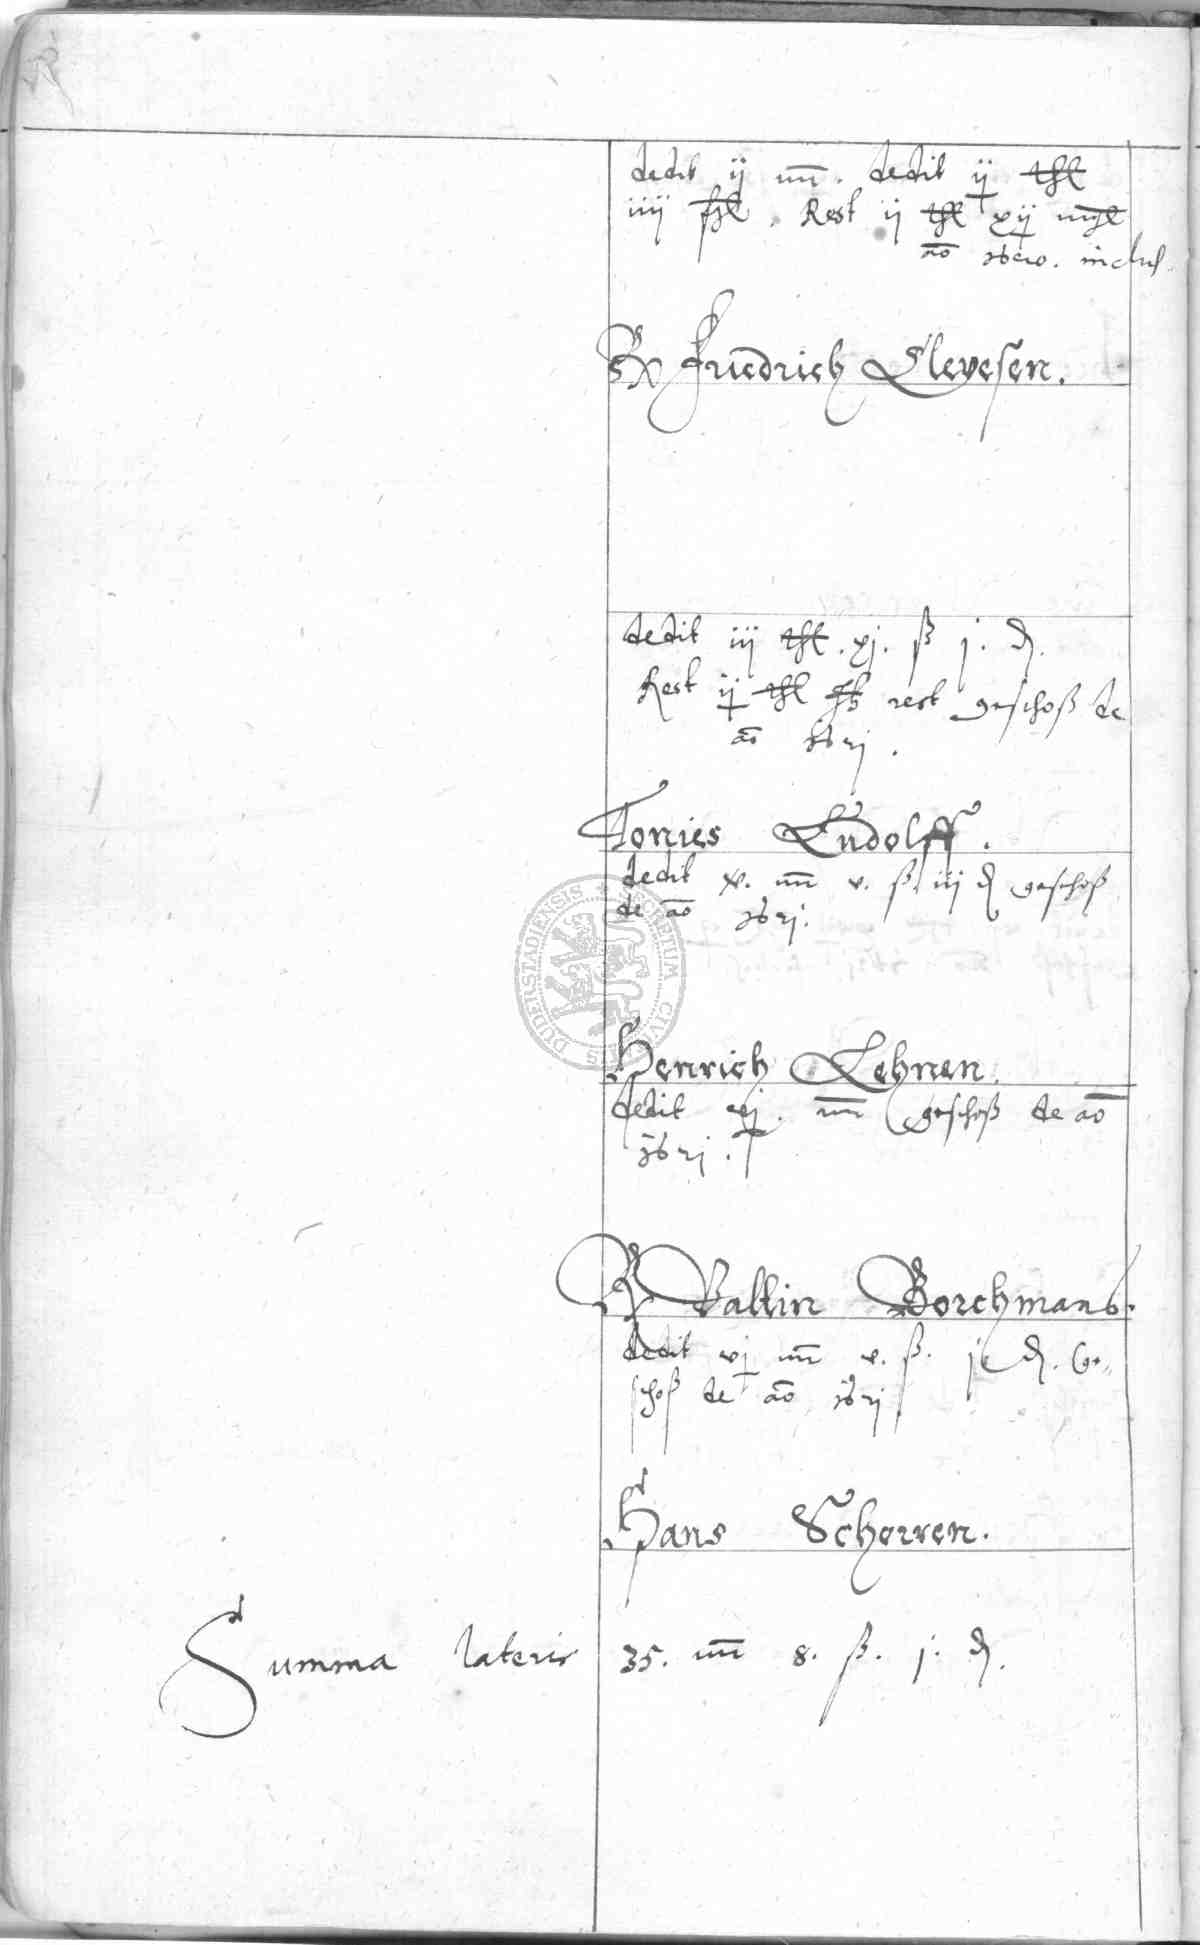 dedit ij m̄. dedit ij thl
iiij ßl. Rest ij thl xij mgl
ao 1620. inclus.
Friedrich Cleyesen.
dedit iij thl. xj. ß j. d.
Rest ij thl rest geschoß de
ao 1621.
Tonies Ludolff.
dedit x. m̄ v. ß. iij d geschoß
de ao 1621.
DUDERSTADIENSIS SECRETUM CIVITATIS
Henrich Lehnen.
dedit m̄ geschoß de ao
1621.
Valtin Borchmans.
dedit vj m̄ v. ß. j d. Ge-
schoß de ao 1621
Hans Scherren.
Summa lateris 35. m̄ 8. ß. j. d.